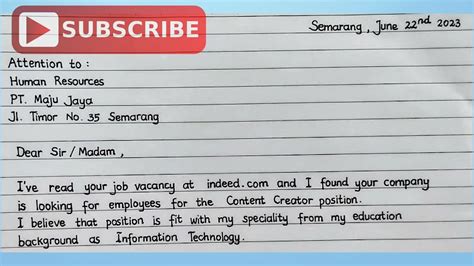 SUBSCRIBE
Semarang, June 22nd 2023
Attention to :
Human Resources
PT. Maju Jaya
Jl. Timor No. 35 Semarang
Dear Sir / Madam ,
I've read your job vacancy at indeed.com and I found your company
is looking for employees for the Content Creator position.
I believe that position is fit with my speciality from my education
background as Information Technology.